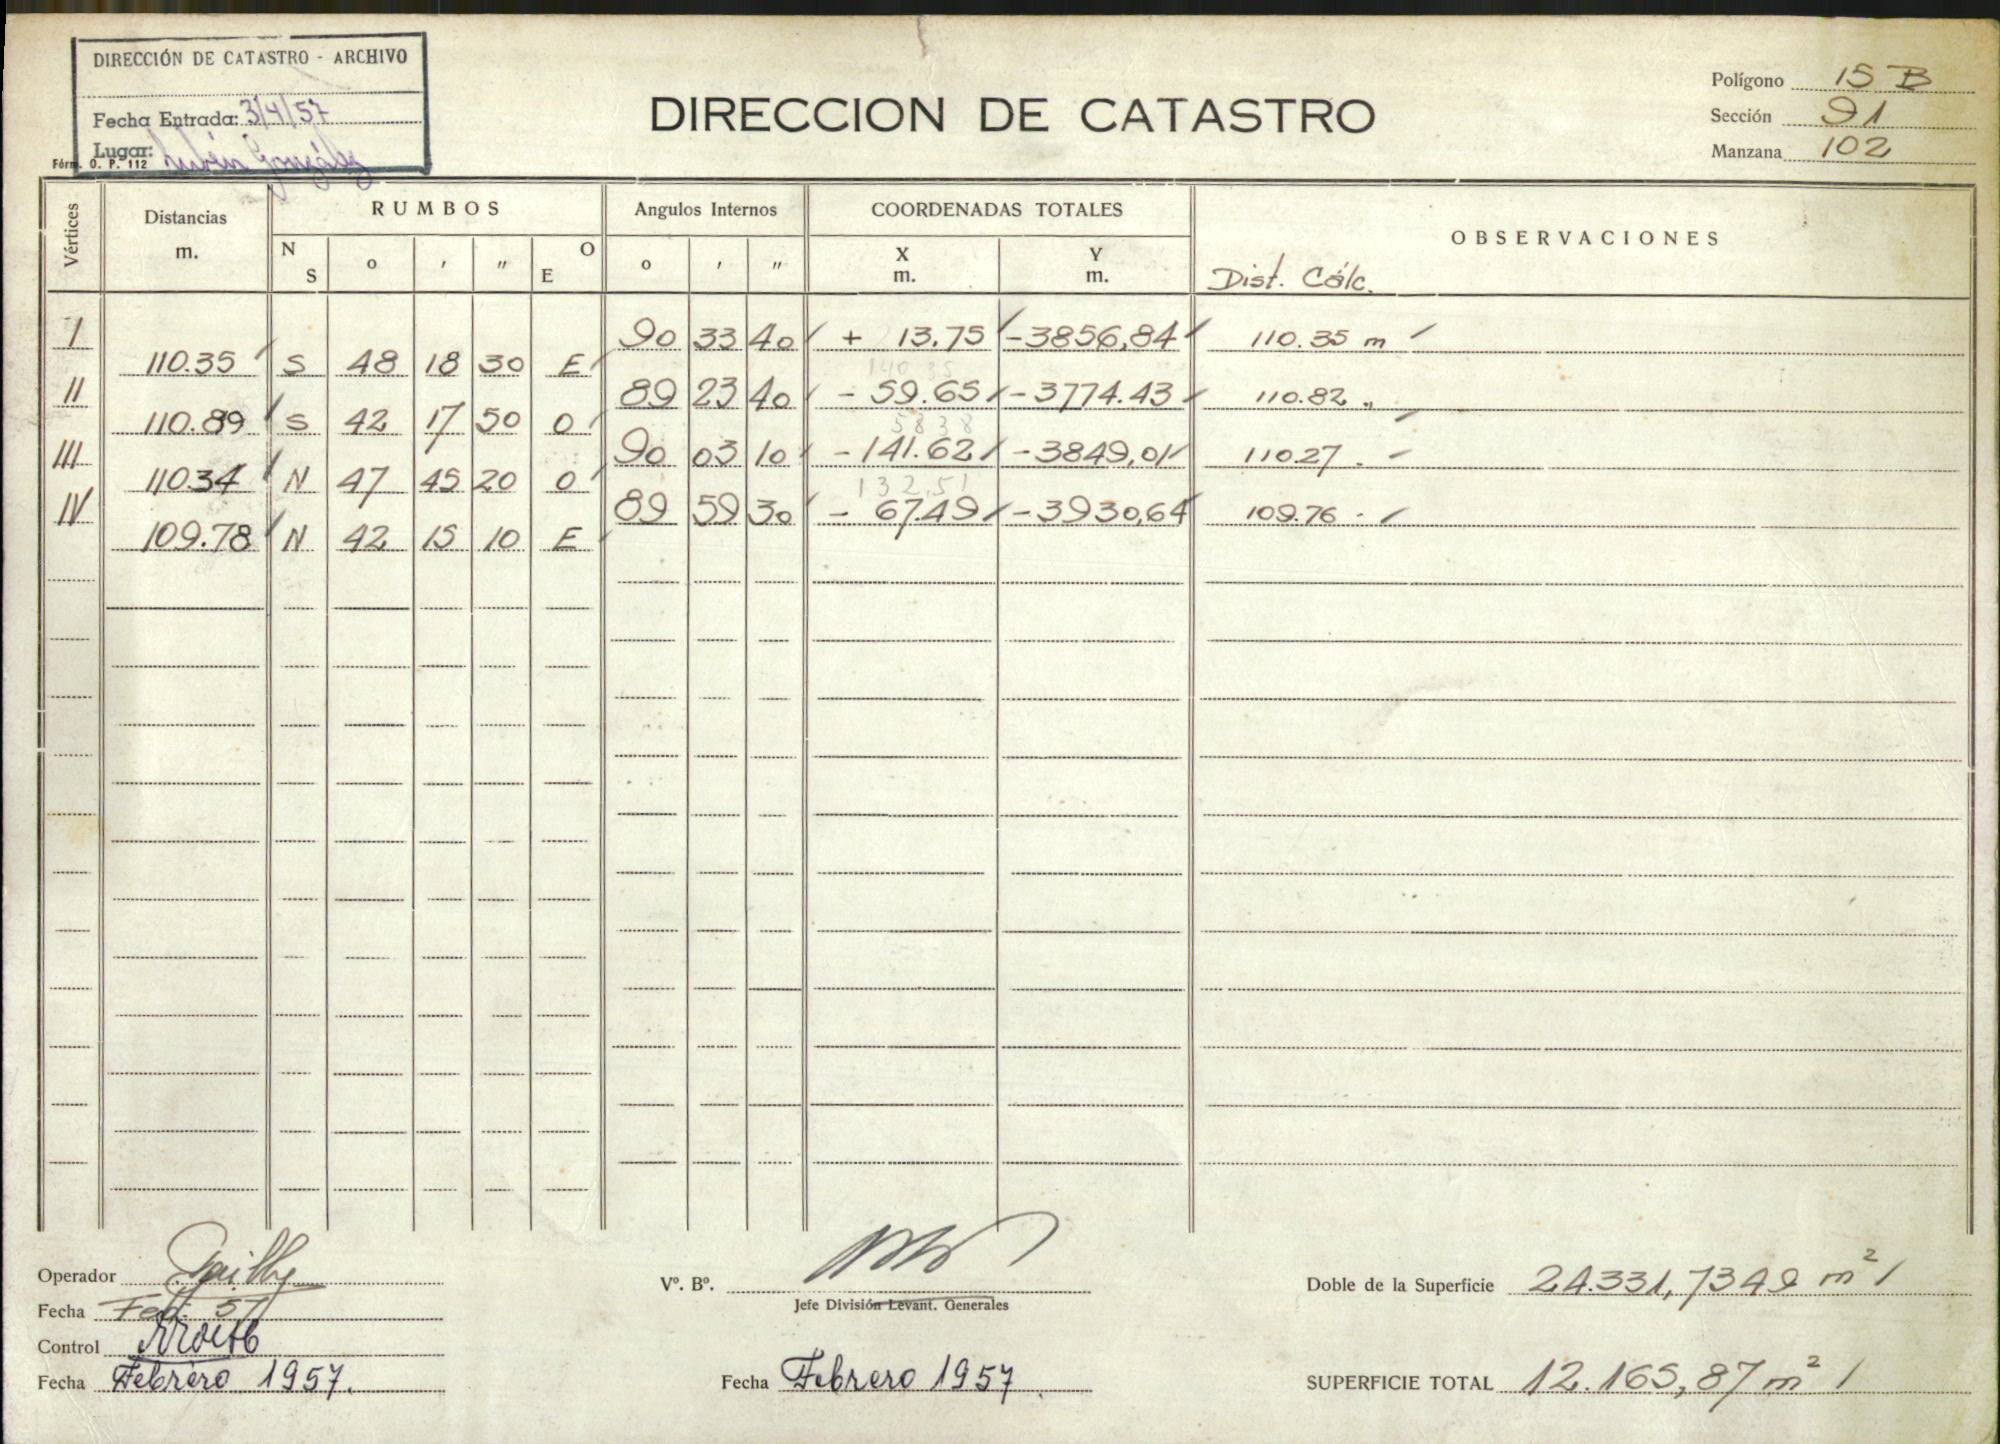 DIRECCIÓN DE CATASTRO - ARCHIVO
Fecha Entrada: 3/4/57
Lugar: Rubén González
Fórm. O. P. 112
DIRECCION DE CATASTRO
Polígono 15 B
Sección 91
Manzana 102
Vértices Distancias m. RUMBOS Angulos Internos COORDENADAS TOTALES OBSERVACIONES
N S o ' " O E o ' " X m. Y m. Dist. Cálc.
I 90 33 40 + 13.75 -3856,84 110.35 m
110.35 S 48 18 30 E
140 35
II 89 23 40 - 59.65 -3774.43 110.82 "
110.89 S 42 17 50 O
58 38
III 90 03 10 -141.62 -3849,01 110.27 .
110.34 N 47 45 20 O
132,51
IV 89 59 30 - 67.49 -3930,64 109.76 .
109.78 N 42 15 10 E
Operador
Fecha Feb. 57
Control
Fecha Febrero 1957.
Vº. Bº.
Jefe División Levant. Generales
Fecha Febrero 1957.
Doble de la Superficie 24.331,7349 m²
SUPERFICIE TOTAL 12.165,87 m²